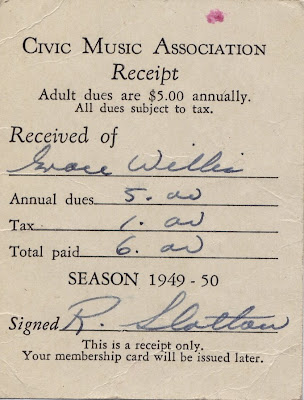 CIVIC MUSIC ASSOCIATION
Receipt
Adult dues are $5.00 annually.
All dues subject to tax.
Received of
Grace Willis
Annual dues 5.00
Tax 1.00
Total paid 6.00
SEASON 1949-50
Signed R. Slatton
This is a receipt only.
Your membership card will be issued later.